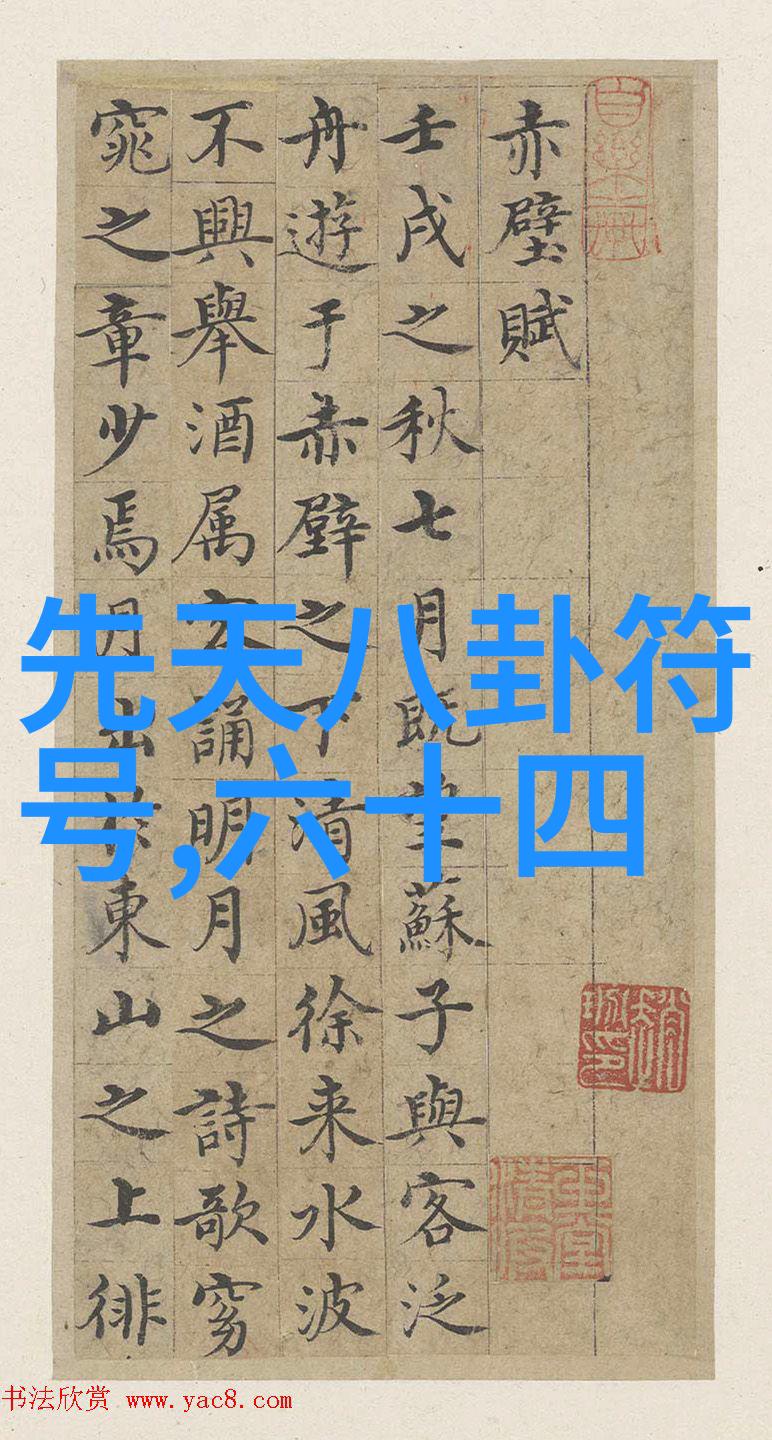 赤壁賦
壬戌之秋七月既望蘇子與客泛
舟遊于赤壁之下清風徐来水波
不興舉酒属客誦明月之詩歌窈
窕之章少焉月出於東山之上徘
先天八卦符
号,六十四
书法欣赏 www.yac8.com